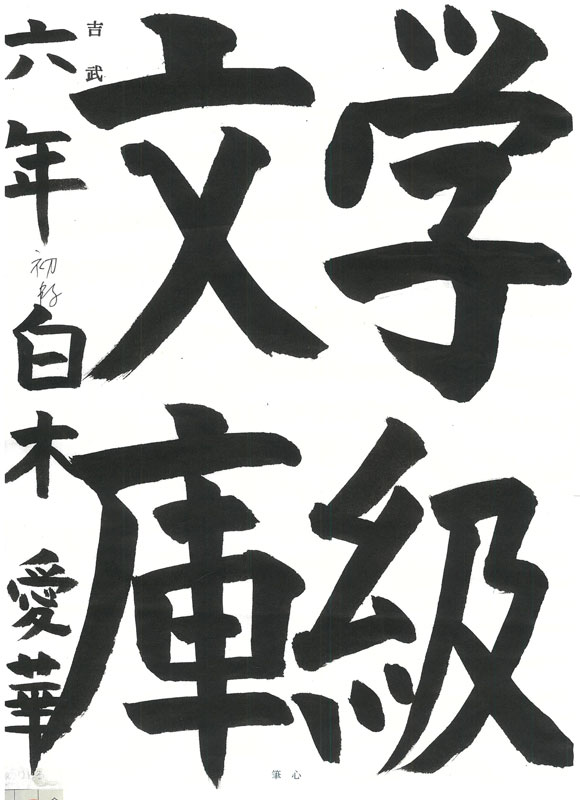 学級
文庫
吉武
六年 白木 愛華
心筆